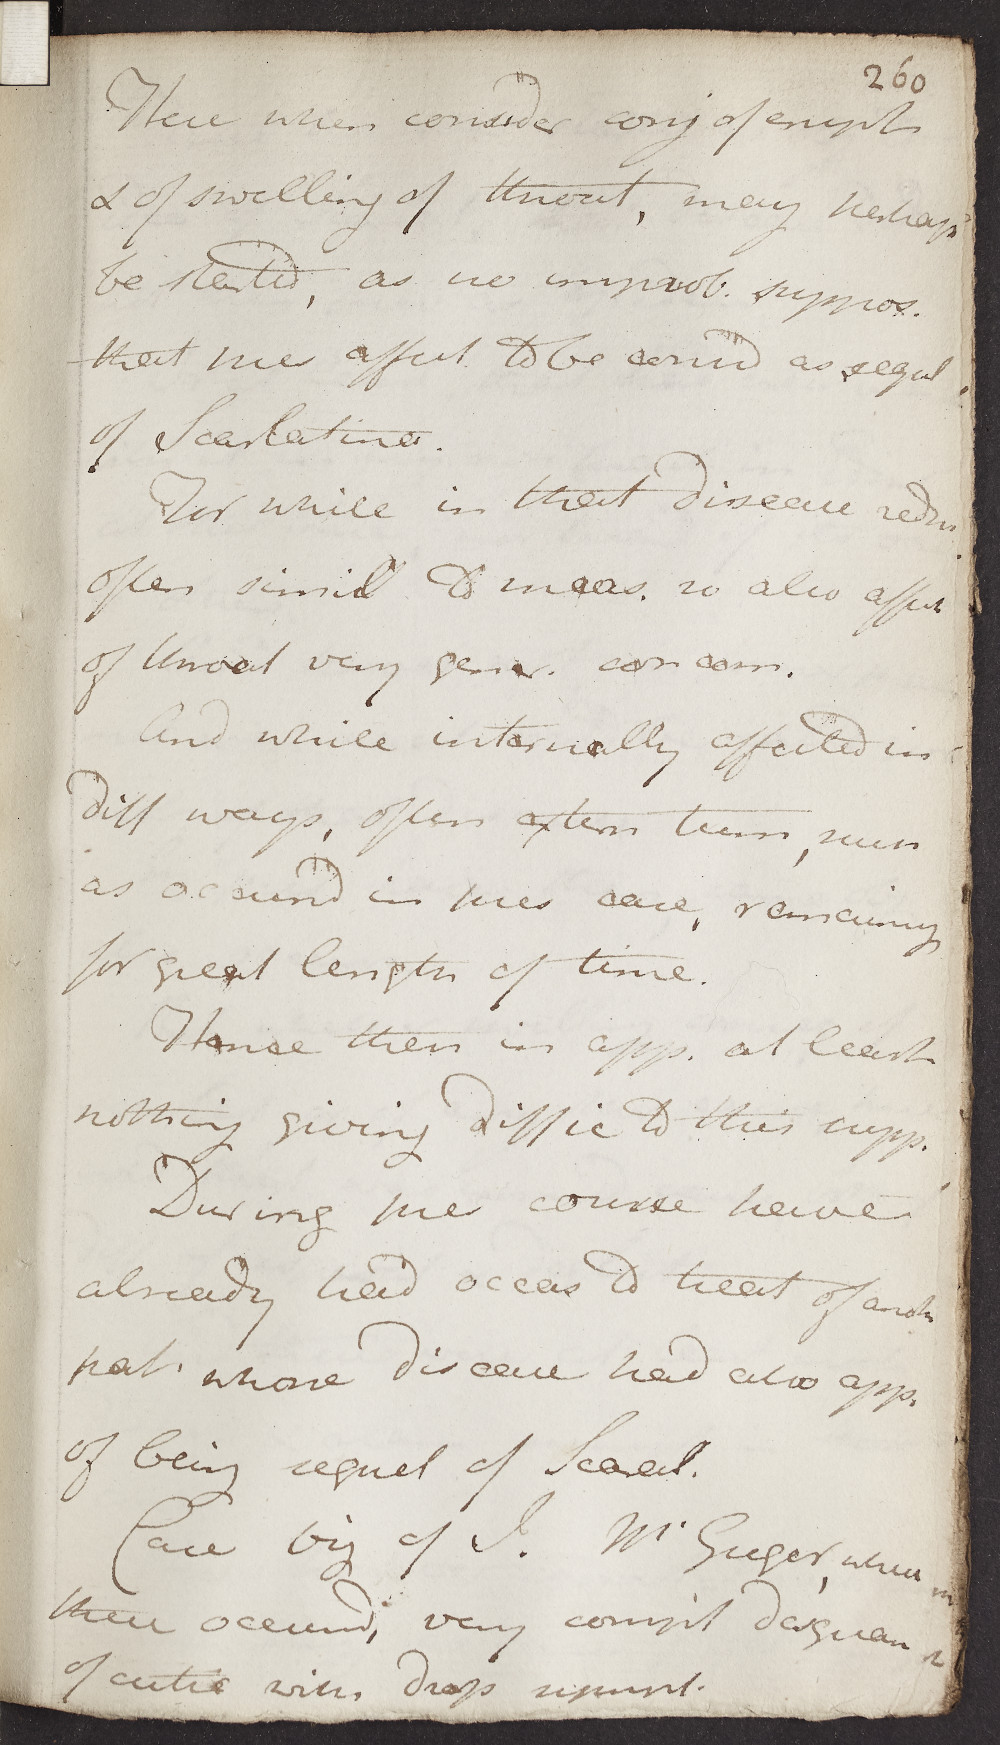 260
Here when consider conj of erupt
& of swelling of throat, may perhaps
be started, as no improb. suppos.
that pres affect to be consid as sequel
of Scarlatina.
For while in that disease redn
often simil to meas. so also affect
of throat very gener. concom.
And while internally affected in
diff ways, often extern tum, such
as occurrd in pres case, remaining
for great length of time.
Hence then in app. at least
nothing giving diffic to this supp.
During pres course have
already had occas to treat of anoth
pat. whose disease had also app.
of being sequel of Scarl.
Case viz of J. Mc Gregor, where
there occurrd, very compl desquam
of cutic with drop